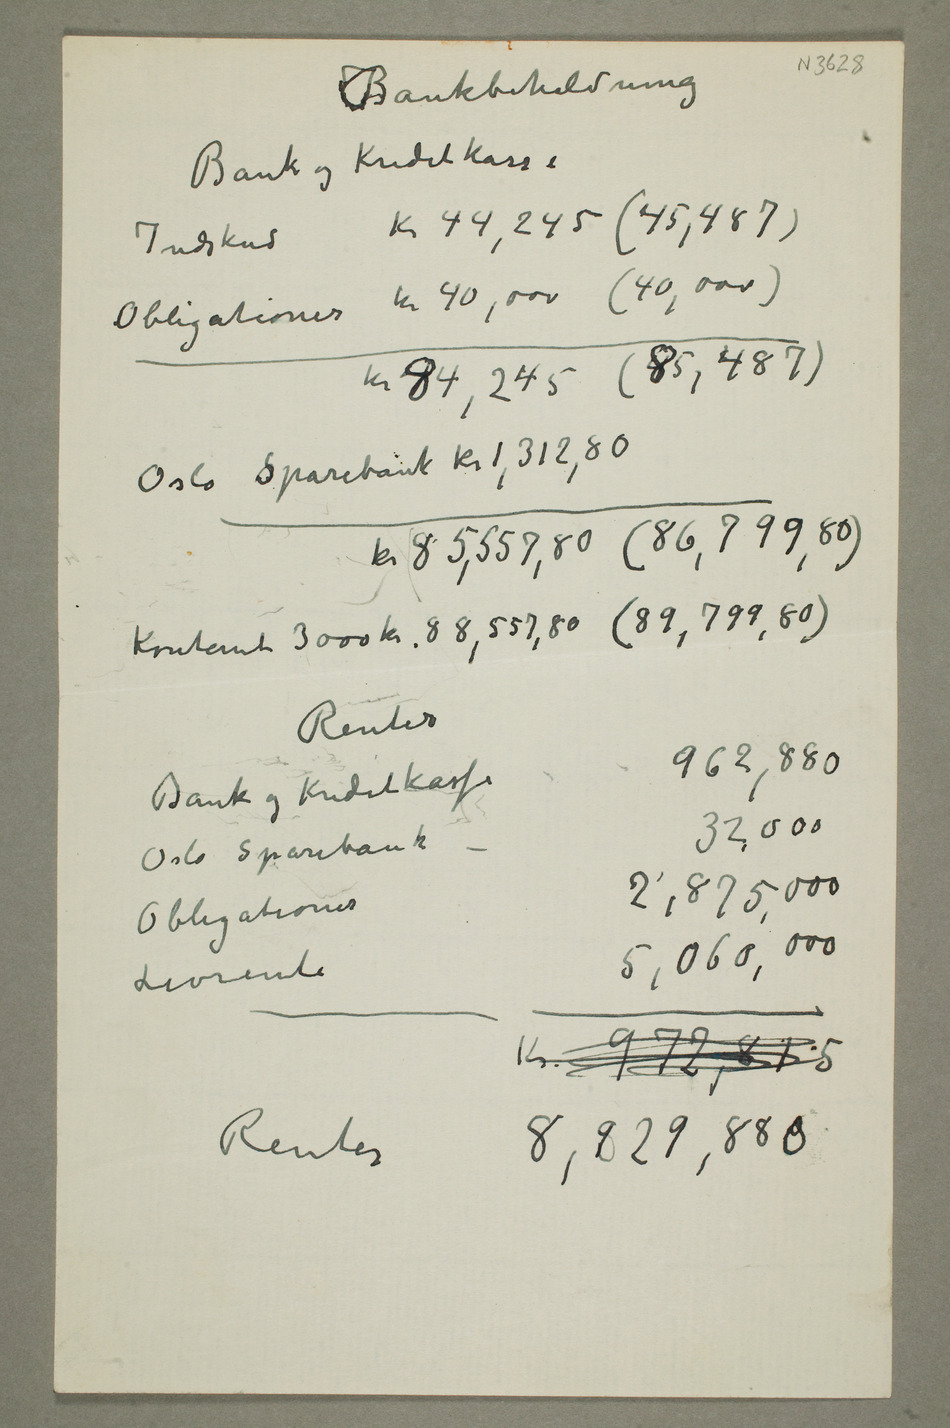 N3628
Bankbeholdning
Bank og Kreditkasse
Indskud Kr 44,245 (45,487)
Obligationer kr 40,000 (40,000)
kr 84,245 (85,487)
Oslo Sparebank kr 1,312,80
kr 85,557,80 (86,799,80)
Kontant 3000 kr. 88,557,80 (89,799,80)
Renter
Bank og Kreditkasse 962,880
Oslo Sparebank – 32,000
Obligationer 2,875,000
Livrente 5,060,000
Kr. 972,815
Renter 8,829,880